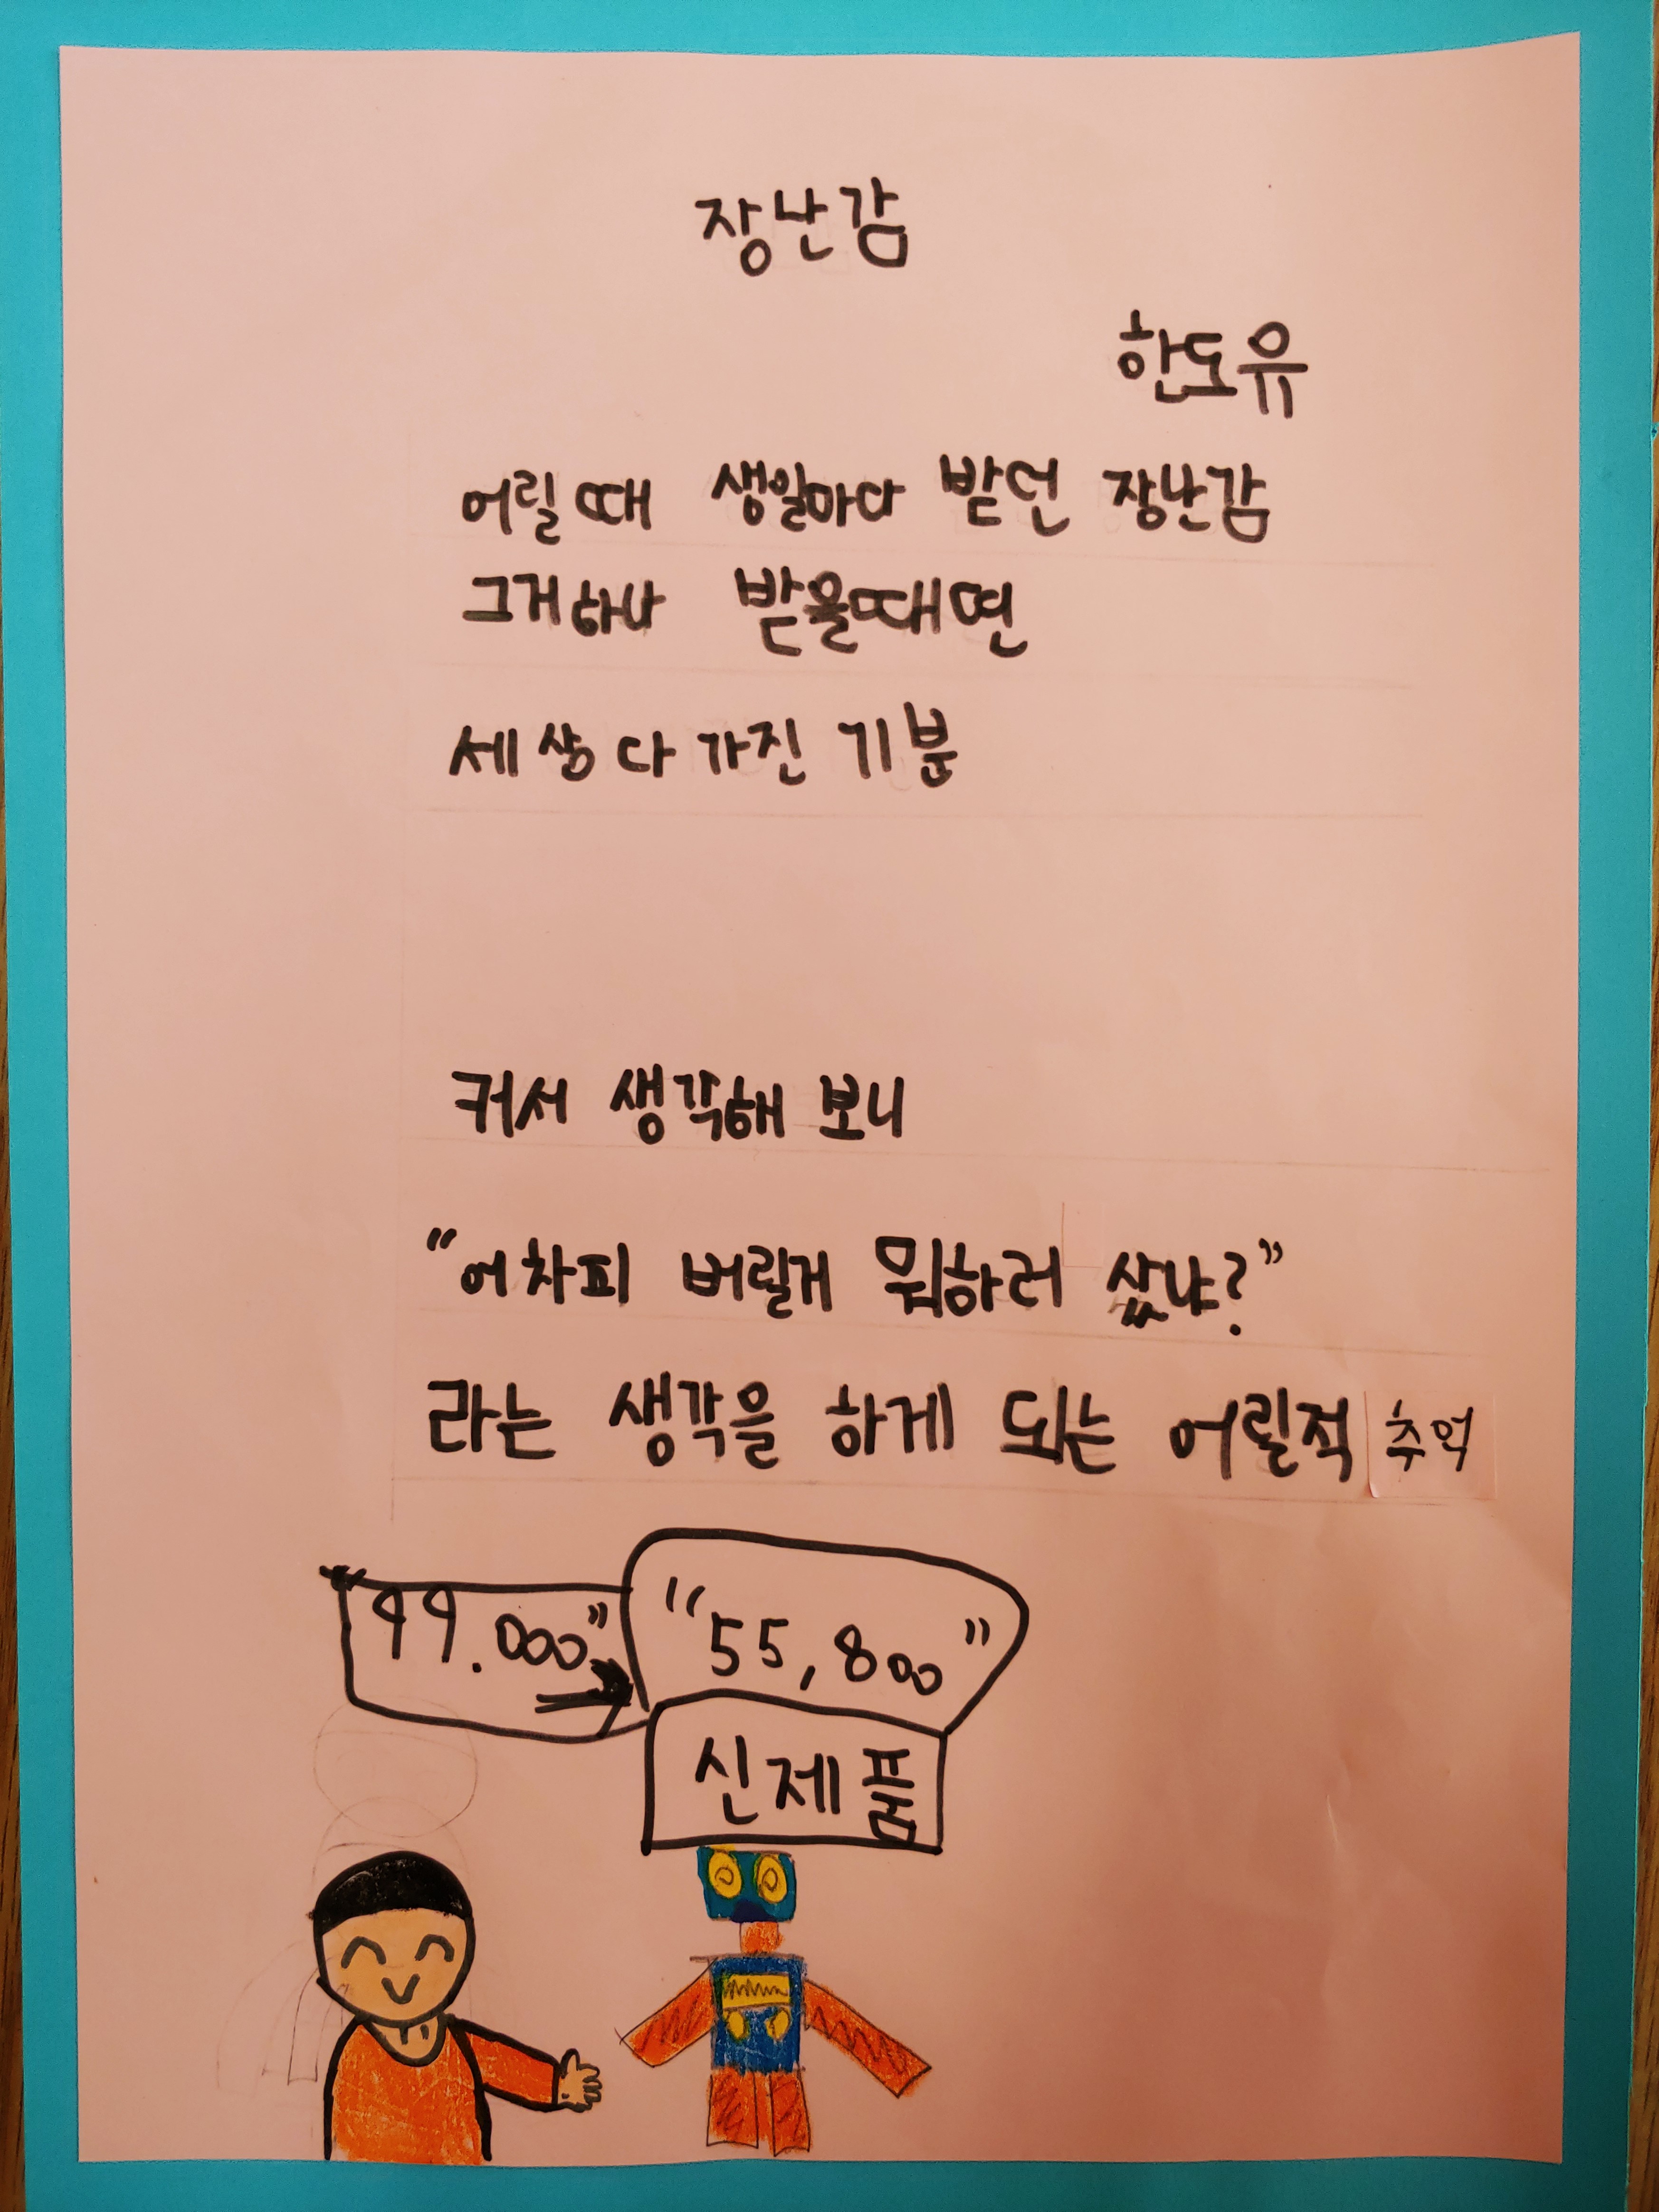 장난감
한도유
어릴때 생일마다 받던 장난감
그거하나 받을때면
세상 다 가진 기분
커서 생각해 보니
"어차피 버릴거 뭐하러 샀냐?"
라는 생각을 하게 되는 어릴적 추억
"99.000" "55,800"
신제품